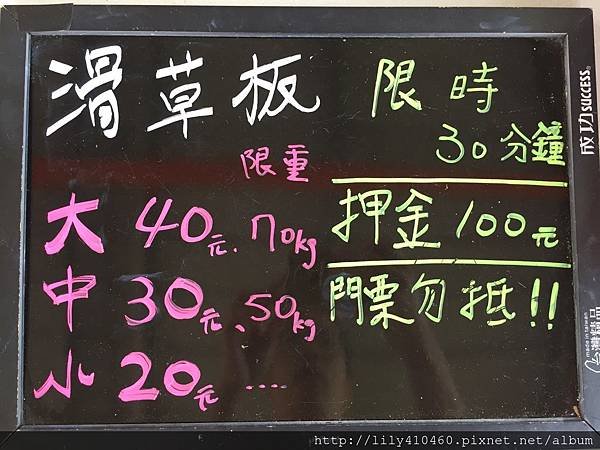 滑草板
限重
大 40元、70kg
中 30元、50kg
小 20元 ....
限時
30分鐘
押金 100元
門票勿抵!!
成功 SUCCESS
made in taiwan
台灣精品
http://lily410460.pixnet.net/album